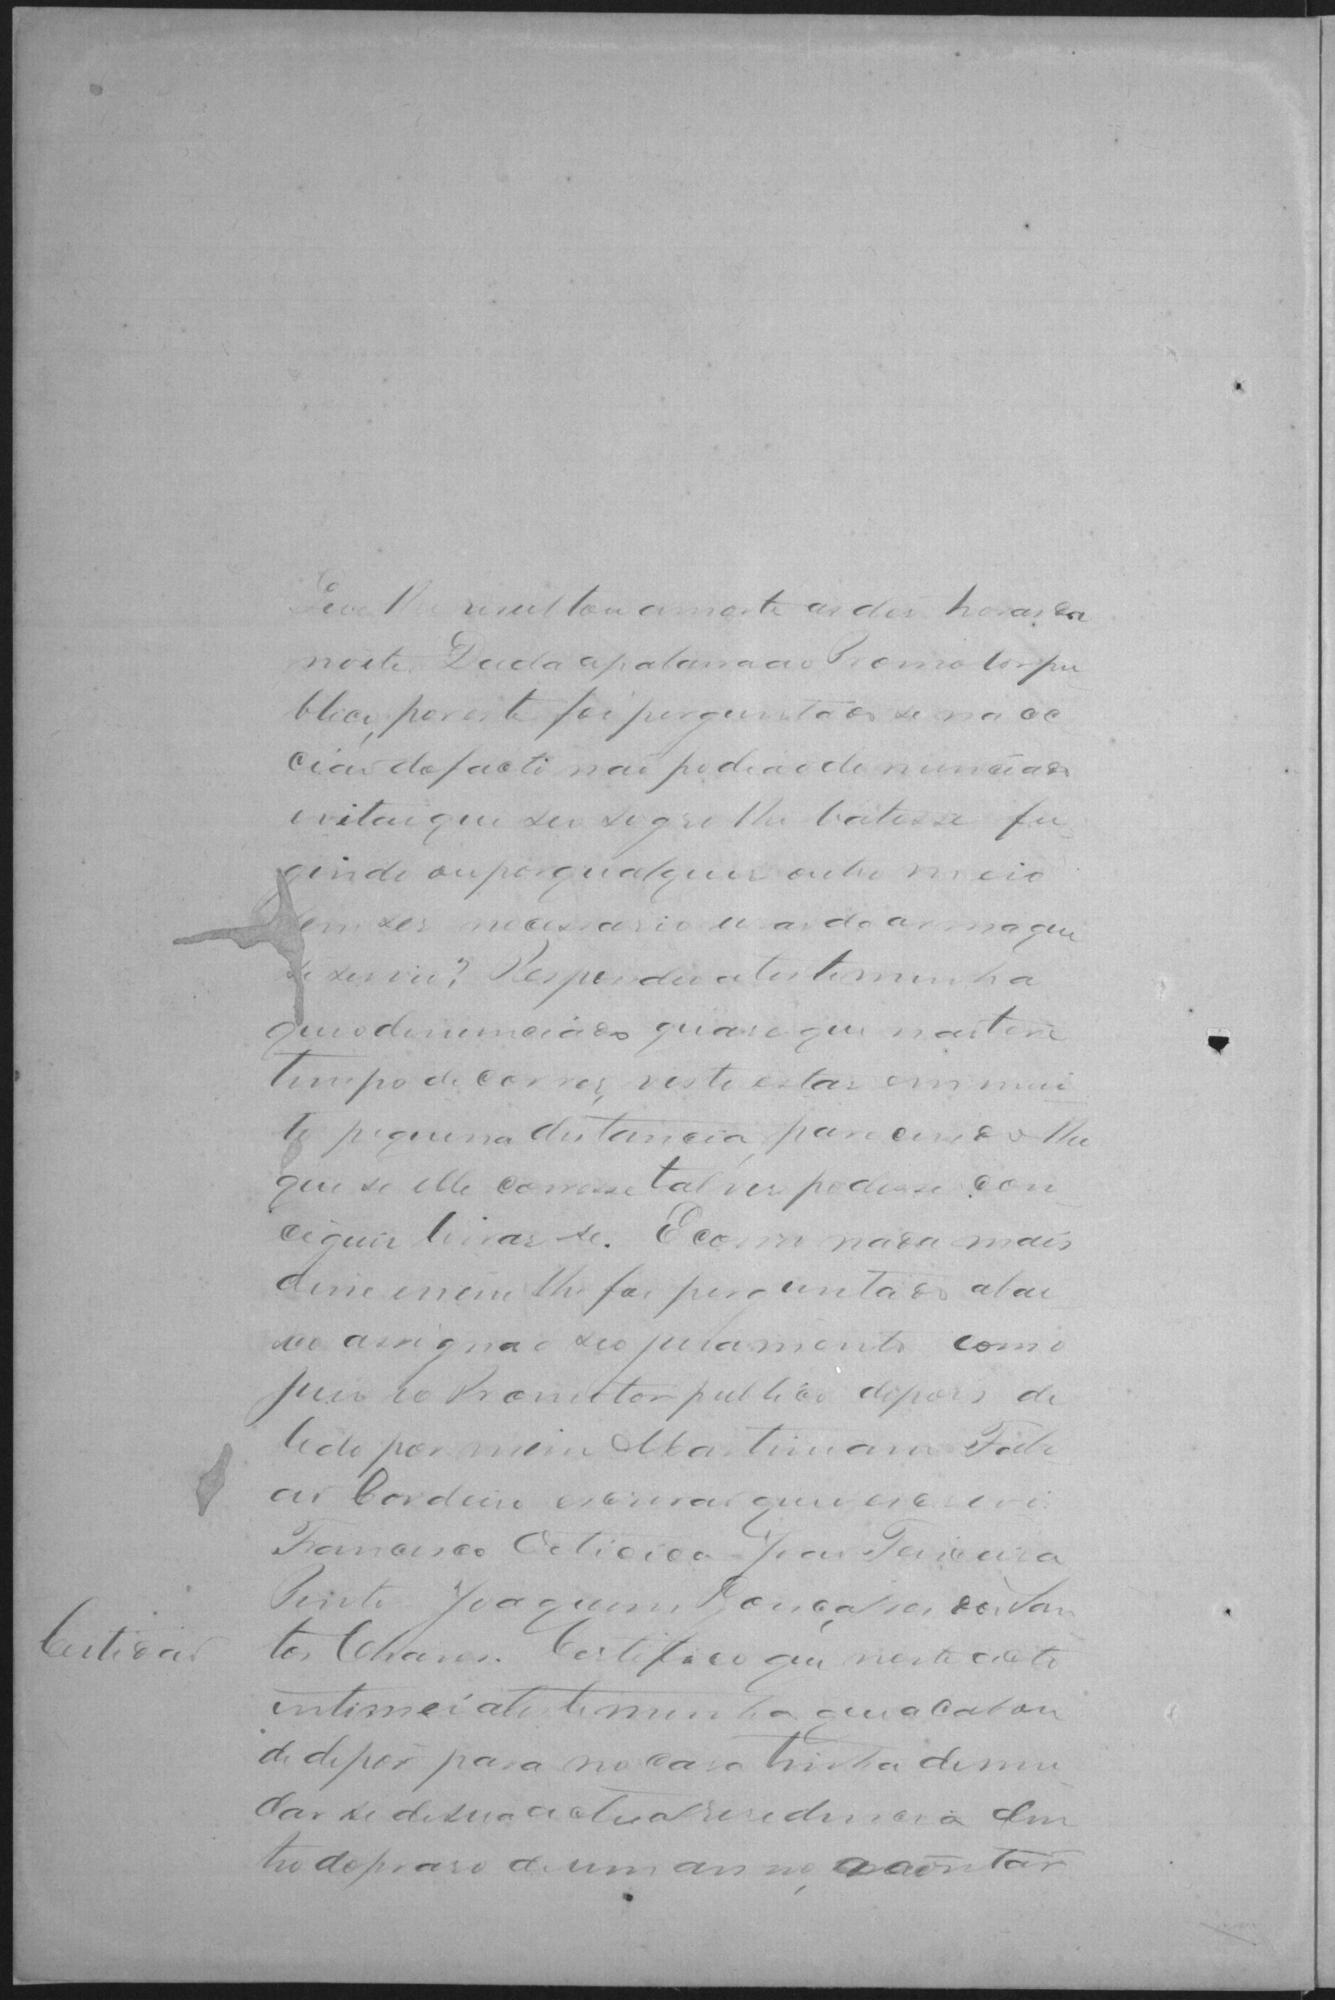 que lhe resultou a morte as des horas da
noite. Dada a palavra ao Promotor pu
blico, por este foi perguntado se na oc
cião do facto não podia o denunciado
evitar que seu sogro lhe batesse fu
gindo ou por qualquer outro meio
sem ser necessario usar da arma que
se servio? Respondeu a testemunha
que o denunciado quase que não teve
tempo de correr, visto estar em mui
to pequena distancia, parecendo lhe
que se elle corresse talves podesse con
ciguir livrar se. E como nada mais
disse e nem lhe foi perguntado
assigna o seo juramento com o
juis eo Promotor publico depois de
lido por mim Martiniano
Cordeiro escrivão que escrevi.
Francisco João Teixeira
Pinto Joaquim Gonçalves dos San
Certidão
tos Chaves. Certifico que neste acto
intimei a testemunha que acabou
de depor para no caso tinha de mu
dar se de sua actual residencia den
tro do praso de um anno, a contar